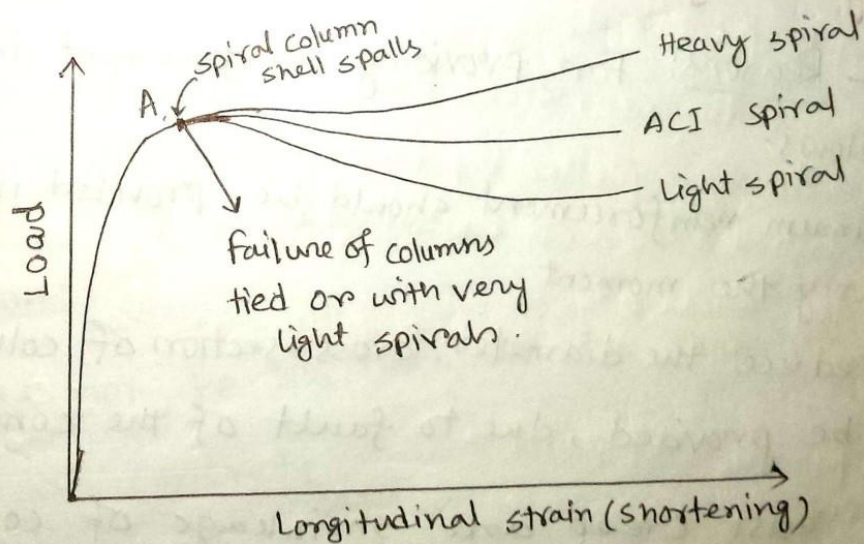 spiral column
shell spalls
A.
Heavy spiral
ACI spiral
Light spiral
Load
failure of columns
tied or with very
light spirals.
Longitudinal strain (shortening)